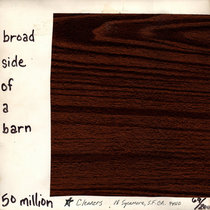 broad
side
of
a
barn
50 million ☆ Cleaners 16 Sycamore, S.F. CA.